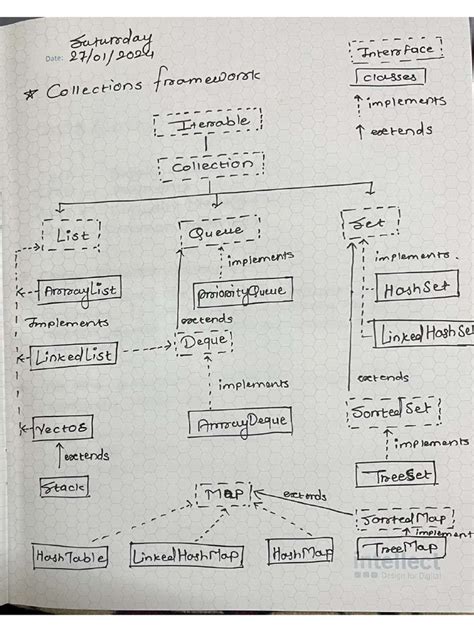 Saturday
Date: 27/01/2024
* Collections framework
Interface
classes
implements
extends
Iterable
Collection
List
Queue
Set
implements
implements.
ArrayList
PriorityQueue
HashSet
Implements
extends
LinkedList
Deque
LinkedHashSet
implements
extends
Vector
ArrayDeque
SortedSet
extends
implements
Stack
TreeSet
Map
extends
SortedMap
implement
HashTable
LinkedHashMap
HashMap
TreeMap
intellect
Design for Digital